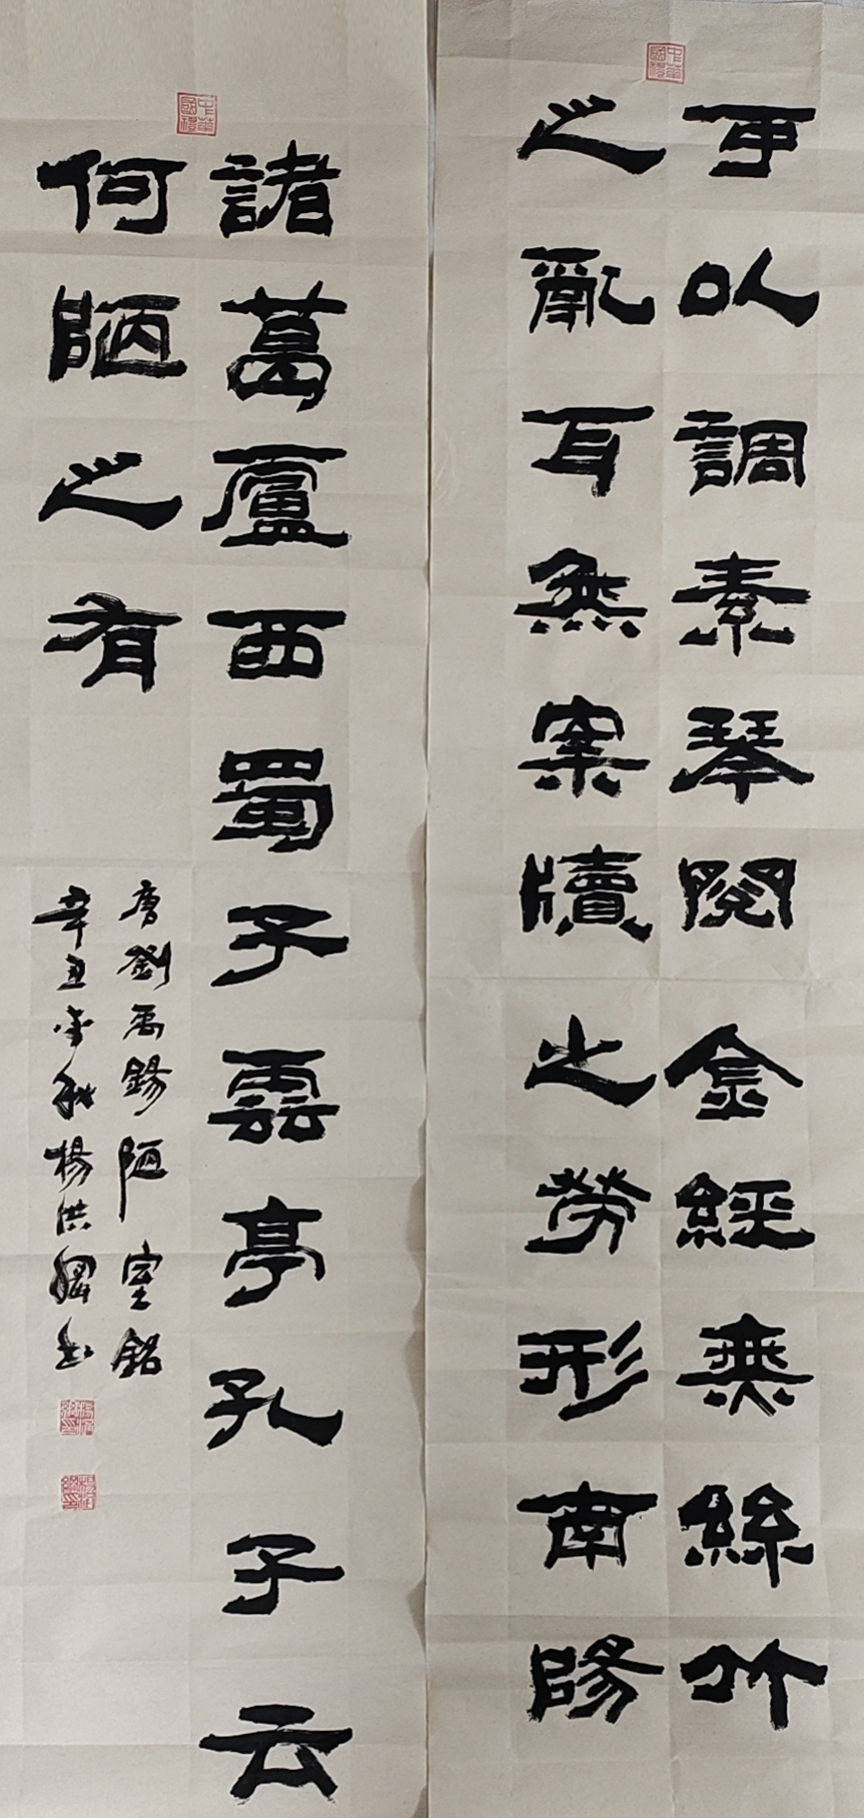 可以調素琴閱金經無絲竹
之亂耳無案牘之勞形南陽
諸葛廬西蜀子雲亭孔子云
何陋之有
唐劉禹錫陋室銘
辛丑金秋楊洪耀書